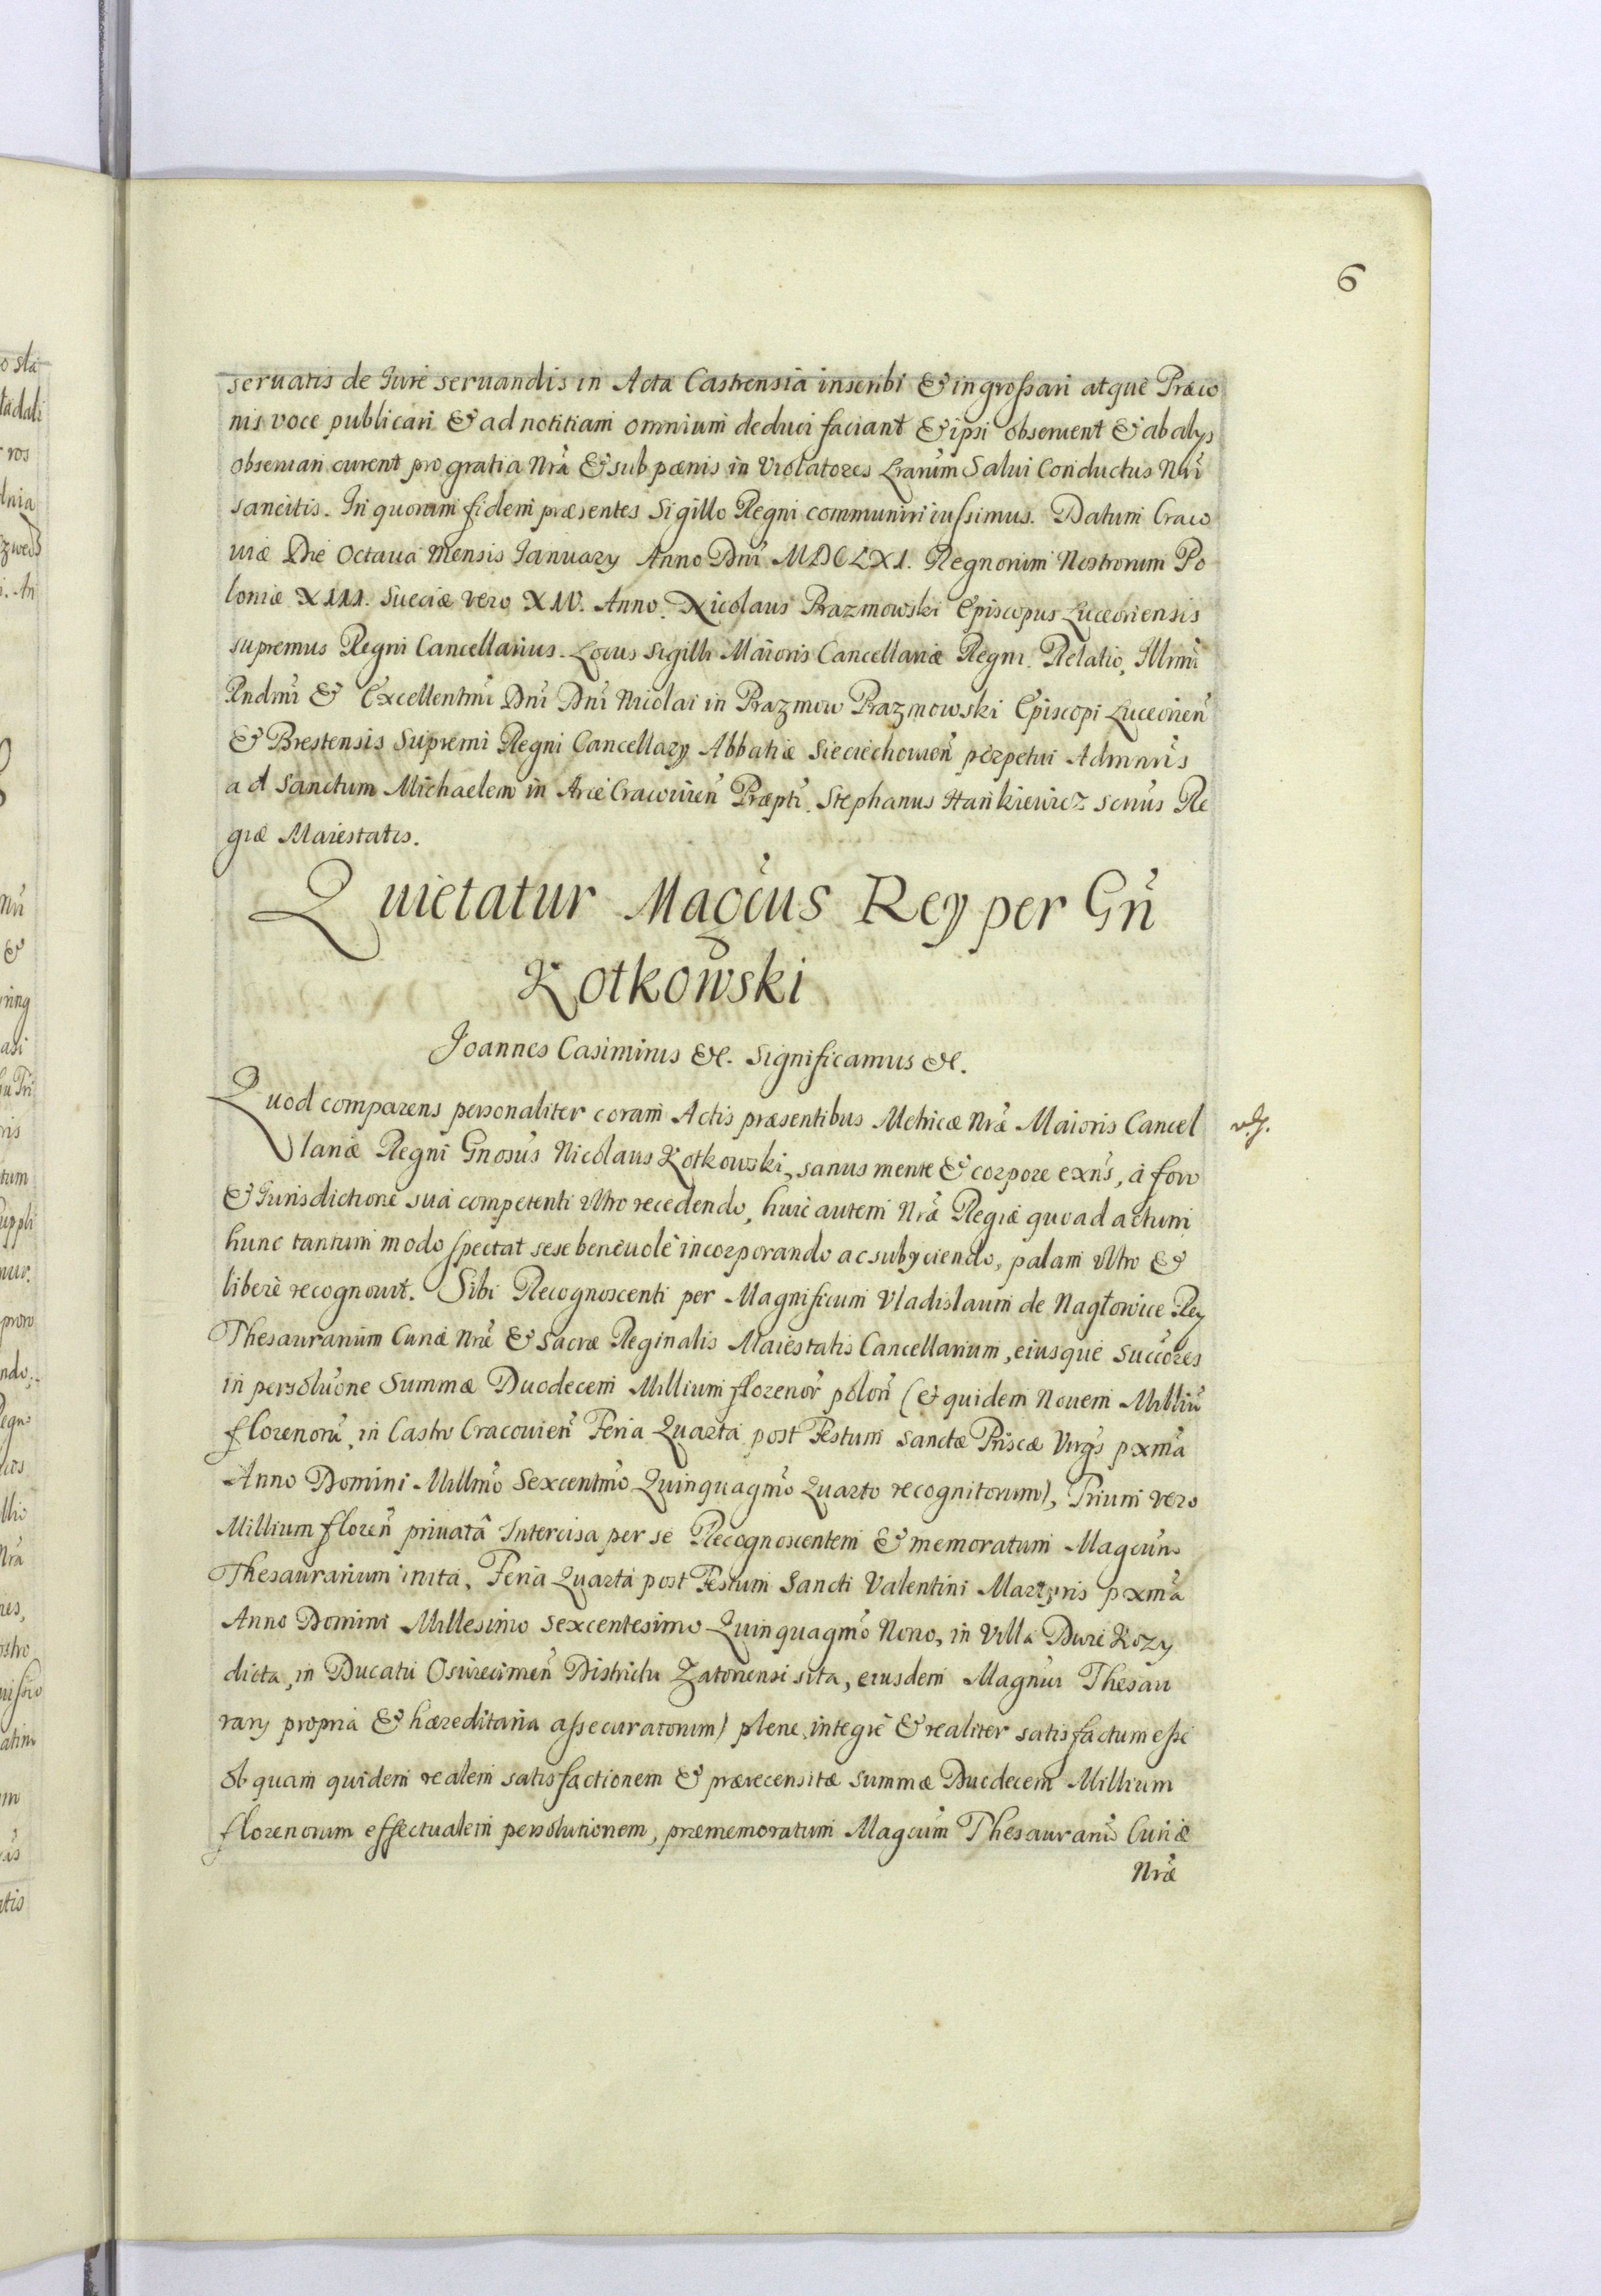 6
seruatis de Iure seruandis in Acta Castrensia inscribi & ingrossari atque Præco
nis voce publicari & ad notitiam omnium deduci faciant & ipsi obseruent & ab alys
obseruari curent pro gratia Nrã & sub pænis in Violatores Lrarum Salui Conductus Nrĩ
sancitis. In quorum fidem præsentes Sigillo Regni communiri iussimus. Datum Craco
uiæ Die Octaua mensis January Anno Dnĩ MDCLXI. Regnorum Nostrorum Po
loniæ XIII. Sueciæ vero XIV. Anno. Nicolaus Prazmowski Episcopus Luceoriensis
supremus Regni Cancellarius. Locus Sigilli Maioris Cancellariæ Regni. Relatio, Illmĩ
Rndmĩ & Excellentmĩ Dnĩ Dnĩ Nicolai in Prazmow Prazmowski Episcopi Luceorien̄
& Brestensis Supremi Regni Cancellary Abbatiæ Sieciechouien̄ perpetui Admnrĩs
ad Sanctum Michaelem in Arce Cracouien̄ Præptĩ. Stephanus Hankiewicz Scrius Re
giæ Maiestatis.
Quietatur Magcus Rey per Gñ
Kotkowski
Joannes Casimirus &c. Significamus &c.
Quod comparens personaliter coram Actis præsentibus Metricæ Nræ Maioris Cancel
lariæ Regni Gnosus Nicolaus Kotkowski, sanus mente & corpore exns, à foro
& Iurisdictione suâ competenti vltro recedendo, huic autem Nræ Regiæ quoad actum
hunc tantum modo spectat sese beneuolè incorporando ac subyciendo, palam vltro &
liberè recognouit. Sibi Recognoscenti per Magnificum Vladislaum de Nagłowice Rey
Thesaurarium Curiæ Nræ & Sacræ Reginalis Maiestatis Cancellarium, eiusque Succores
in persolũone Summæ Duodecem Millium florenor̃ polon̄ (et quidem Nouem Milliũ
florenorũ in Castro Cracouien̄ Feria Quarta post Festum Sanctæ Priscæ Virgs pxmã
Anno Domini Millmõ Sexcentmõ Quinquagmõ Quarto recognitorum), Trium vero
Millium floren̄ priuatâ Intercisa per se Recognoscentem & memoratum Magcum
Thesaurarium inita, Feria Quarta post Festum Sancti Valentini Martyris pxmã
Anno Domini Millesimo Sexcentesimo Quinquagmõ Nono, in Villa Dwie Kozy
dicta, in Ducatu Osuiecimen̄ Districtu Zatoriensi sita, eiusdem Magnci Thesau
rary propria & hæreditaria assecuratorum) plene, integrè & realiter satisfactum esse
ob quam quidem realem satisfactionem & præcensitæ summæ Duodecem Millium
florenorum effectualem persolutionem, præmemoratum Magcum Thesaurariũ Curiæ
Nræ